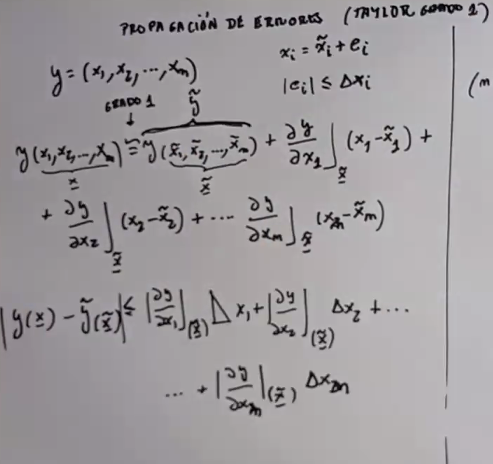 PROPAGACIÓN DE ERRORES (TAYLOR GRADO 1)
xᵢ = x̃ᵢ + eᵢ
y = (x₁, x₂, ..., xₘ)
|eᵢ| ≤ Δxᵢ
GRADO 1
↓
ỹ
(m
y(x₁, x₂, ..., xₘ) ≅ y(x̃₁, x̃₂, ..., x̃ₘ) + ∂y/∂x₁]_x̃ (x₁ - x̃₁) +
x x̃
+ ∂y/∂x₂]_x̃ (x₂ - x̃₂) + ... ∂y/∂xₘ]_x̃ (xₘ - x̃ₘ)
|y(x) - ỹ(x̃)| ≤ |∂y/∂x₁|_(x̃) Δx₁ + |∂y/∂x₂|_(x̃) Δx₂ + ...
... + |∂y/∂xₘ|_(x̃) Δxₘ